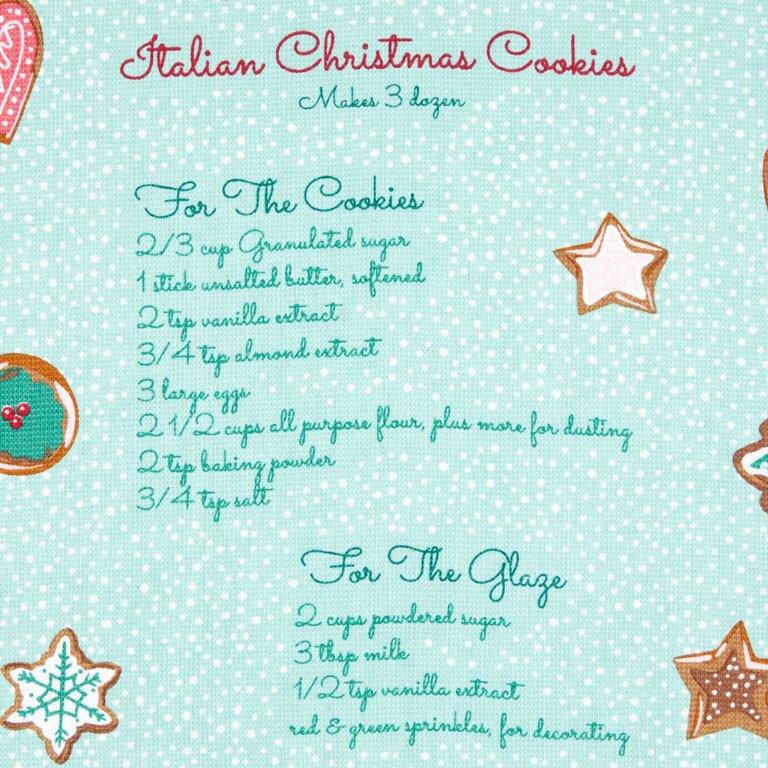 Italian Christmas Cookies
Makes 3 dozen
For The Cookies
2/3 cup Granulated sugar
1 stick unsalted butter, softened
2 tsp vanilla extract
3/4 tsp almond extract
3 large eggs
2 1/2 cups all purpose flour, plus more for dusting
2 tsp baking powder
3/4 tsp salt
For The Glaze
2 cups powdered sugar
3 tbsp milk
1/2 tsp vanilla extract
red & green sprinkles, for decorating